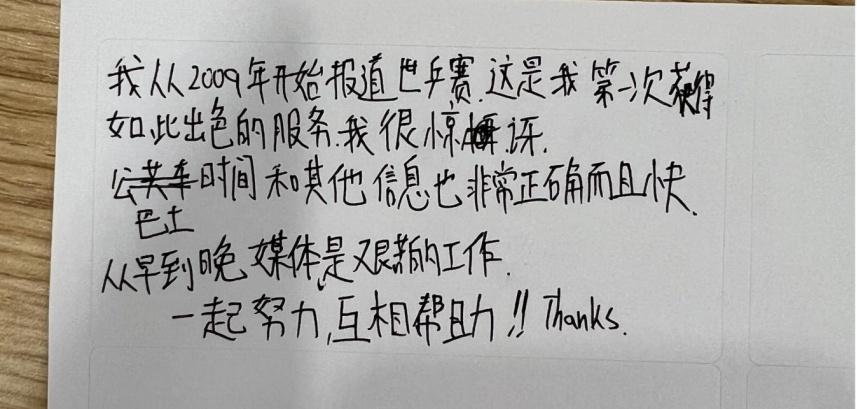 我从2009年开始报道世乒赛.这是我第一次获得
如此出色的服务.我很惊讶.
公共车时间和其他信息也非常正确而且快.
巴士
从早到晚媒体是艰新的工作.
一起努力,互相帮助!! Thanks.